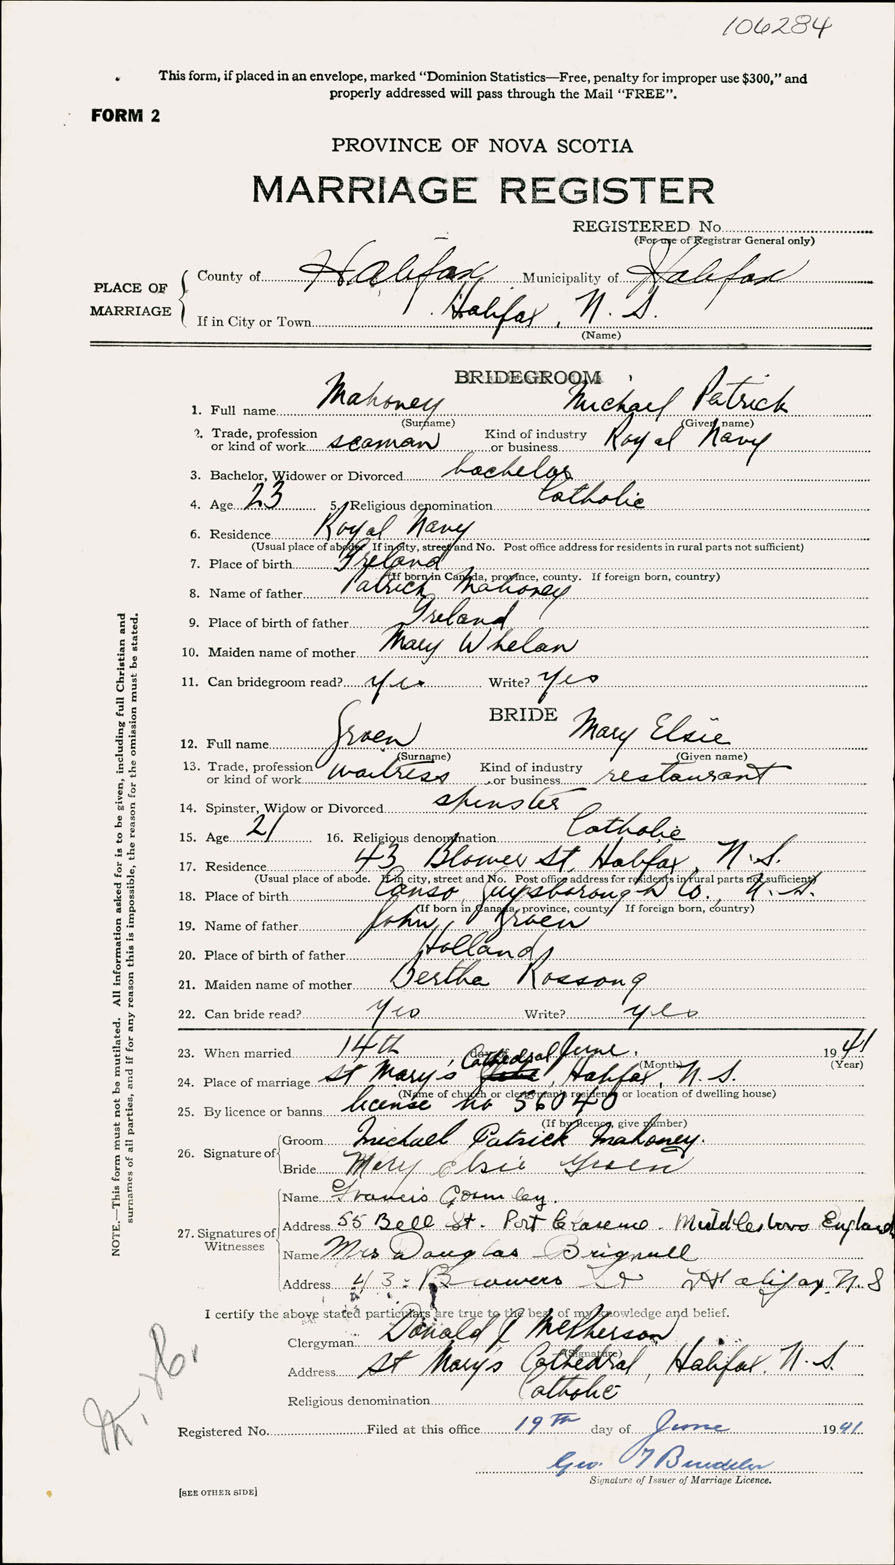 106284
This form, if placed in an envelope, marked “Dominion Statistics—Free, penalty for improper use $300,” and
properly addressed will pass through the Mail “FREE”.
FORM 2
PROVINCE OF NOVA SCOTIA
MARRIAGE REGISTER
REGISTERED No.
(For use of Registrar General only)
PLACE OF MARRIAGE
County of Halifax Municipality of Halifax
If in City or Town Halifax, N.S.
(Name)
BRIDEGROOM
1. Full name Mahoney Michael Patrick
(Surname) (Given name)
2. Trade, profession or kind of work seaman Kind of industry or business Royal Navy
3. Bachelor, Widower or Divorced bachelor
4. Age 23 5. Religious denomination Catholic
6. Residence Royal Navy
(Usual place of abode. If in city, street and No. Post office address for residents in rural parts not sufficient)
7. Place of birth Ireland
(If born in Canada, province, county. If foreign born, country)
8. Name of father Patrick Mahoney
9. Place of birth of father Ireland
10. Maiden name of mother Mary Whelan
11. Can bridegroom read? yes Write? yes
BRIDE
12. Full name Groen Mary Elsie
(Surname) (Given name)
13. Trade, profession or kind of work waitress Kind of industry or business restaurant
14. Spinster, Widow or Divorced spinster
15. Age 21 16. Religious denomination Catholic
17. Residence 43 Blower St, Halifax, N.S.
(Usual place of abode. If in city, street and No. Post office address for residents in rural parts not sufficient)
18. Place of birth Canso, Guysborough Co., N.S.
(If born in Canada, province, county. If foreign born, country)
19. Name of father John Groen
20. Place of birth of father Holland
21. Maiden name of mother Bertha Rossong
22. Can bride read? yes Write? yes
23. When married 14th day of June. 1941
(Month) (Year)
24. Place of marriage St Mary's Cathedral, Halifax, N.S.
(Name of church or clergyman's residence or location of dwelling house)
25. By licence or banns license no 56040
(If by licence, give number)
26. Signature of
Groom Michael Patrick Mahoney.
Bride Mary Elsie Groen
27. Signatures of Witnesses
Name Francis Gormley.
Address 55 Bell St. Port Middlesboro England
Name Mrs Douglas Brignull
Address 43 Blowers St Halifax, N.S
I certify the above stated particulars are true to the best of my knowledge and belief.
Clergyman Donald J McPherson
(Signature)
Address St Mary's Cathedral, Halifax. N.S.
Religious denomination Catholic
Registered No. Filed at this office 19th day of June 1941
Geo.
Signature of Issuer of Marriage Licence.
[SEE OTHER SIDE]
NOTE.—This form must not be mutilated. All information asked for is to be given, including full Christian and
surnames of all parties, and if for any reason this is impossible, the reason for the omission must be stated.